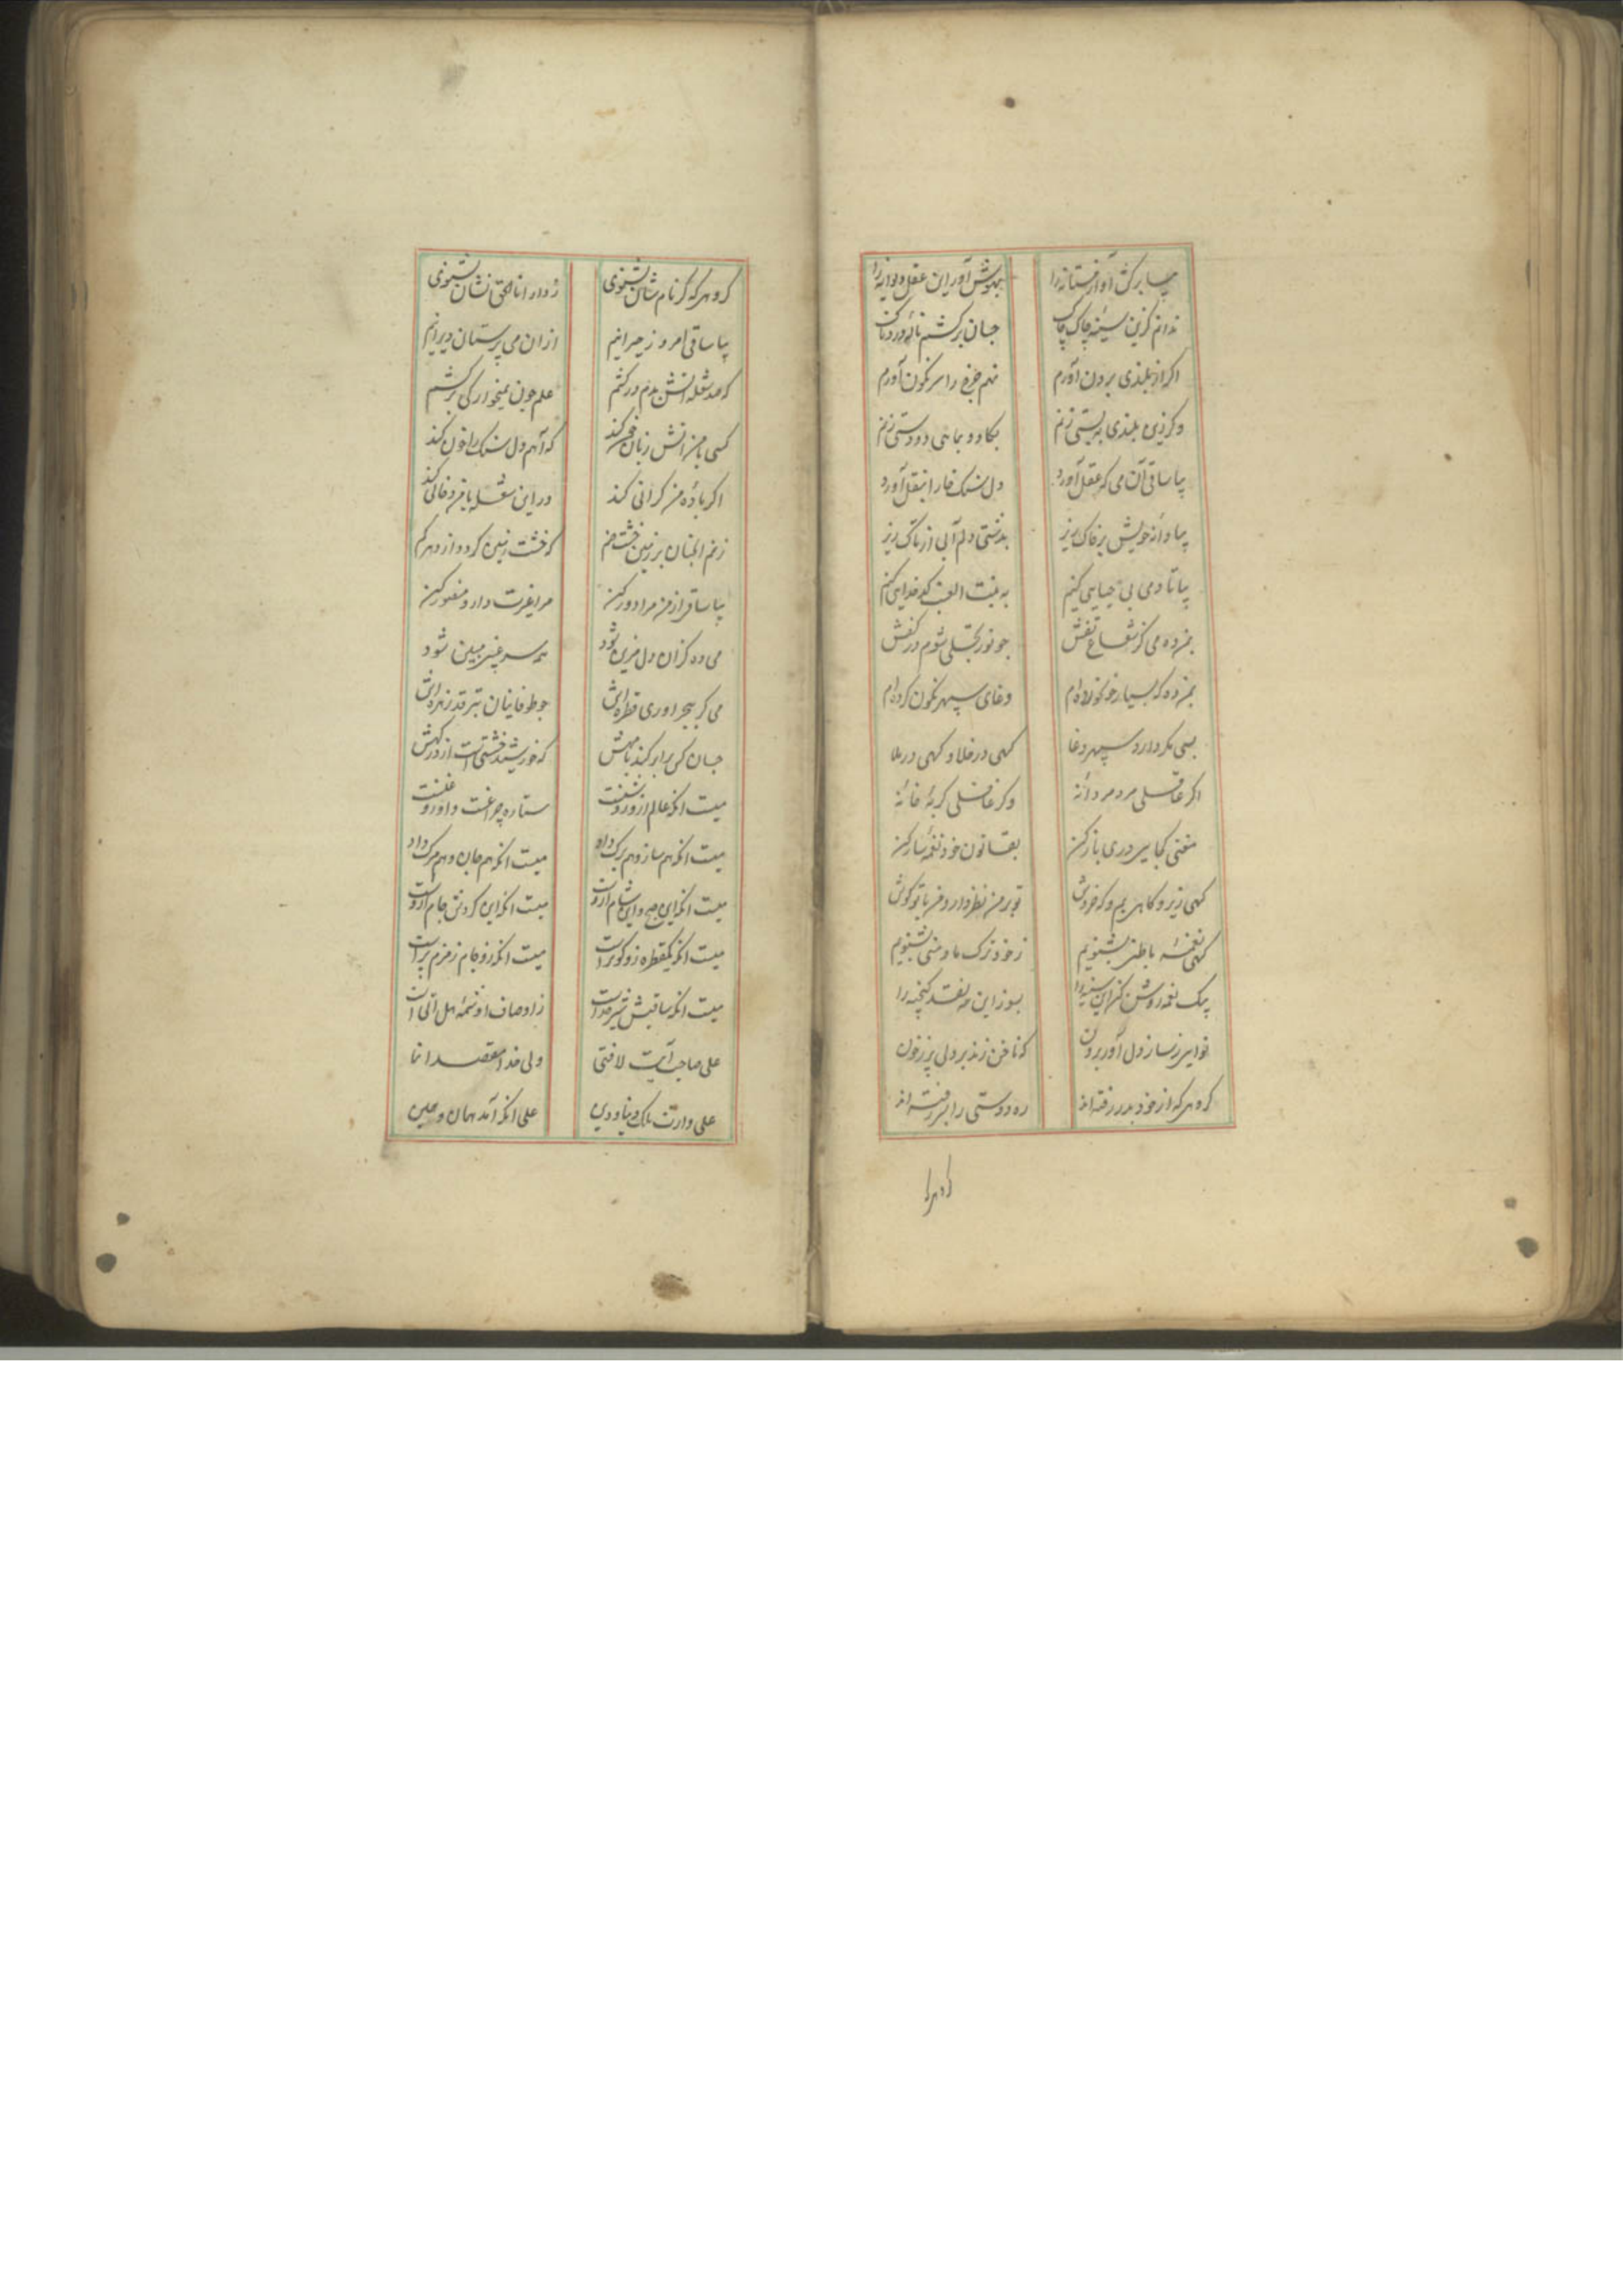 بیا برکش آواز مستانه را بهوش آور این عقل دیوانه را
ندانم کزین سینهٔ چاک چاک چسان برکشم نالهٔ دردناک
اکر از بلندی برون آورم نهم چرخ را سرنکون آورم
وکر زین بلندی به پستی زنم بکاو و بماهی دو دستی زنم
بیا ساقی آن می که عقل آورد دل سنک خارا بنقل آورد
بیا و از خویش بر خاک ریز بدشتی دلم آبی از تاک ریز
بیا تا دمی بی حیایی کنیم به بنت العنب کدخدایی کنیم
بمن ده می کز شعاع تفش چو نور تجلی شوم در کفش
بمن ده که بسیار خو کرده‌ام دغای سپهر نکون کرده‌ام
بسی مکر دارد سپهر دغا کهی در خلا و کهی در ملا
اکر عاقلی مرد مردانه وکر غافلی کربهٔ خانه
مغنی کجایی دری باز کن بقانون خود نغمهٔ ساز کن
کهی زیر و کاهی بم و که خروش تو بر من نظر دار و من با تو کوش
کهی نغمه با طنز بشنویم ز خود ترک ما و منی بشنویم
بیک نغمه روشن کن این سینه را بسوز این همه نقد کنجینه را
نوایی ز ساز دل آور برون که ناخن زند بر دلی پر ز خون
کروهی که از خود بدر رفته‌اند ره دوستی را بسر رفته‌اند
کروهی که کر نام شان بشنوی ز دار انا الحق نشان بشنوی
بیا ساقی امروز حیرانیم از آن می پرستان دیرانیم
که صد شعله آتش بدم در کشم علم چون بمیخوارکی برکشم
کسی با من آتش زبان چون کند که آهم دل سنک را خون کند
اکر باده من کرانی کند در این شعله یا فرد فانی کند
زنم آنچنان بر زمین خشت خم که خشت زمین کردد از دهر کم
بیا ساقی از من مرا دور کن مرا غیرت دار و منصور کن
می ده کزان دل مزین شود همه سر غیبم مبین شود
می کر ببحر اوری قطره‌اش چو طوفانیان بترقد زهره‌اش
جهان کی برابر کند با مهش که خورشید خشتی است از درکهش
میست انکه عالم ازو روشنست ستاره چراغست و او روغنست
میست انکه هم ساز و هم برک داد میست انکه هم جان و هم مرک داد
میست انکه این صبح و این شام ازوست میست انکه این کردش جام ازوست
میست انکه یکقطره زو کوثر است میست انکه زو جام زمزم پر است
میست انکه ساقیش شیر خداست ز اوصاف او شمهٔ هل اتی است
علی صاحب آیت لافتی ولی خدا مقصد انما
علی وارث ملک دنیا و دین علی انکه آمد همان و همین